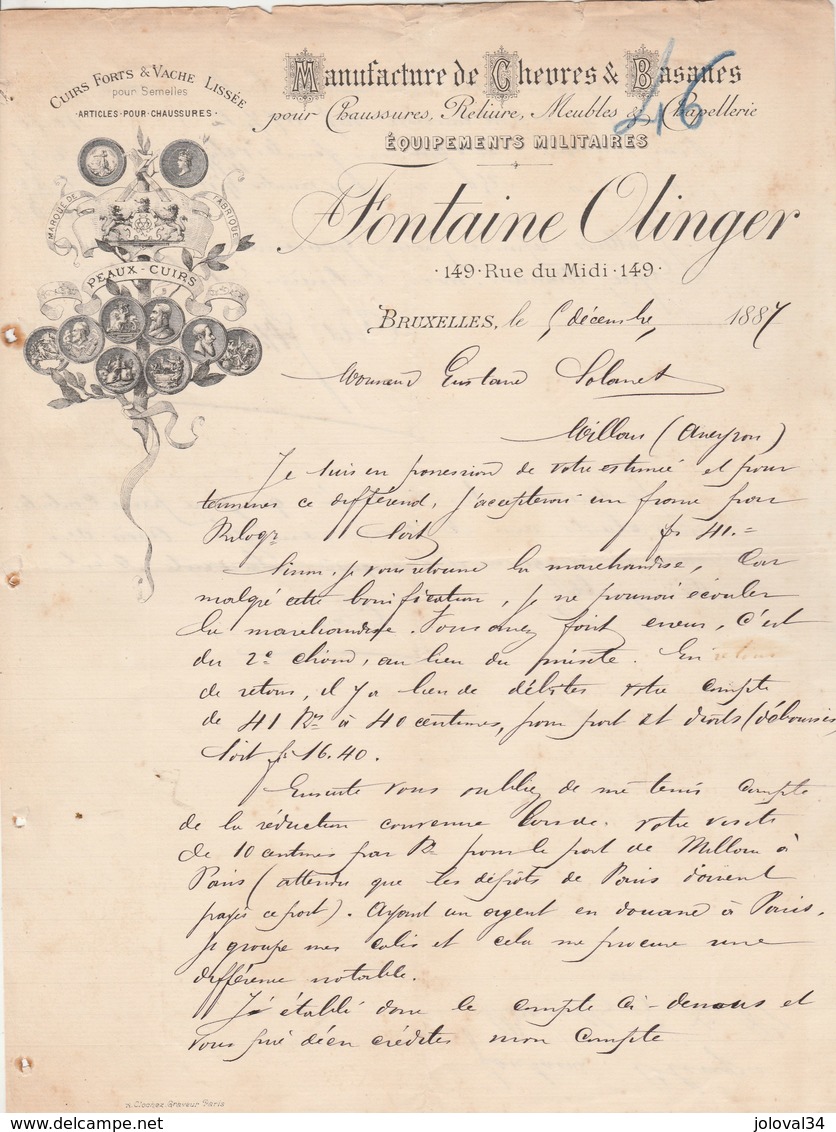 Cuirs Forts & Vache Lissée
pour Semelles
·ARTICLES·POUR·CHAUSSURES·
MARQUE DE FABRIQUE
PEAUX-CUIRS
Manufacture de Chevres & Basanes
46
pour Chaussures, Reliure, Meubles & Chapellerie
ÉQUIPEMENTS MILITAIRES
A Fontaine Olinger
·149·Rue du Midi·149·
BRUXELLES, le 5 décembre 1887
Monsieur Gustave Solanet
Millau (Aveyron)
Je suis en possession de votre estimée et pour
terminer ce différend, j'accepterai un franc par
Kilogr Soit fs 41.=
Sinon, je vous retourne la marchandise, Car
malgré cette bonification, je ne pourrai écouler
la marchandise. Vous avez fait erreur, C'est
du 2e choix, au lieu du
de retour, il y a lieu de débiter votre compte
de 41 Ks à 40 centimes, pour port et droits (déboursés)
Soit fs 16.40.
Ensuite vous oubliez de me tenir compte
de la réduction convenue lors de votre visite
de 10 centimes par K pour le port de Millau à
Paris (attendu que les dépôts de Paris doivent
payer ce port). Ayant un agent en douane à Paris,
je groupe mes colis et cela me procure une
différence notable.
J'ai établi donc le compte ci-dessous et
vous prie d'en créditer mon compte
N. Clochez Graveur Paris
joloval34